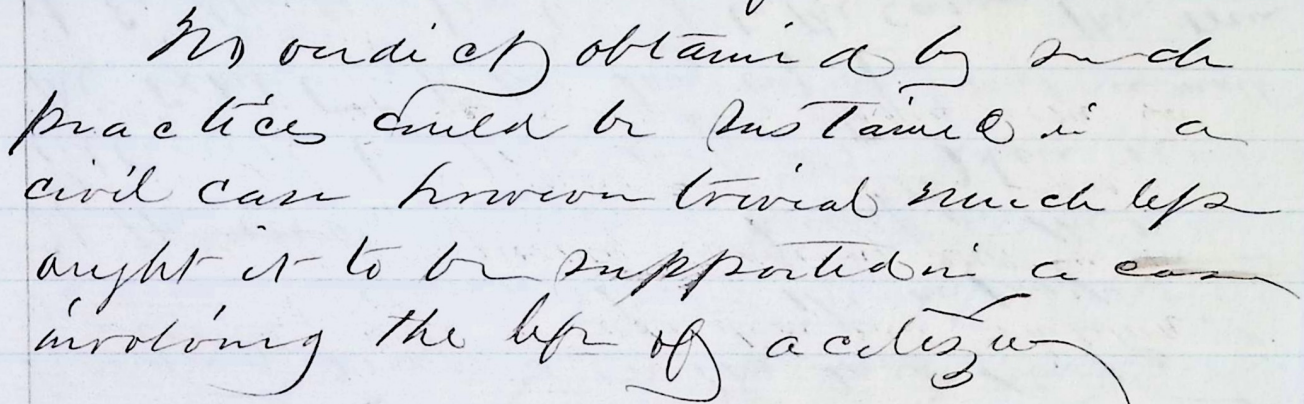 No verdict obtained by such
practices could be sustained in a
civil case however trivial much less
ought it to be supported in a case
involving the life of a citizen